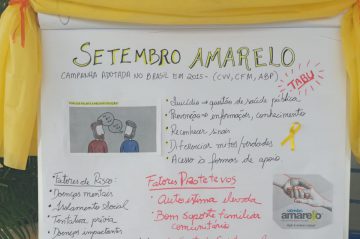 SETEMBRO AMARELO
CAMPANHA ADOTADA NO BRASIL EM 2015 - (CVV, CFM, ABP)
TABU
Suicídio → questão de saúde pública
Prevenção → informações, conhecimento
Reconhecer sinais
Diferenciar mitos/verdades
Acesso à formas de apoio
Fatores de Risco:
Doenças mentais
Isolamento social
Tentativa prévia
Doenças impactantes
Fatores Protetivos
Autoestima elevada
Bom suporte familiar
comunitário
setembro
amarelo